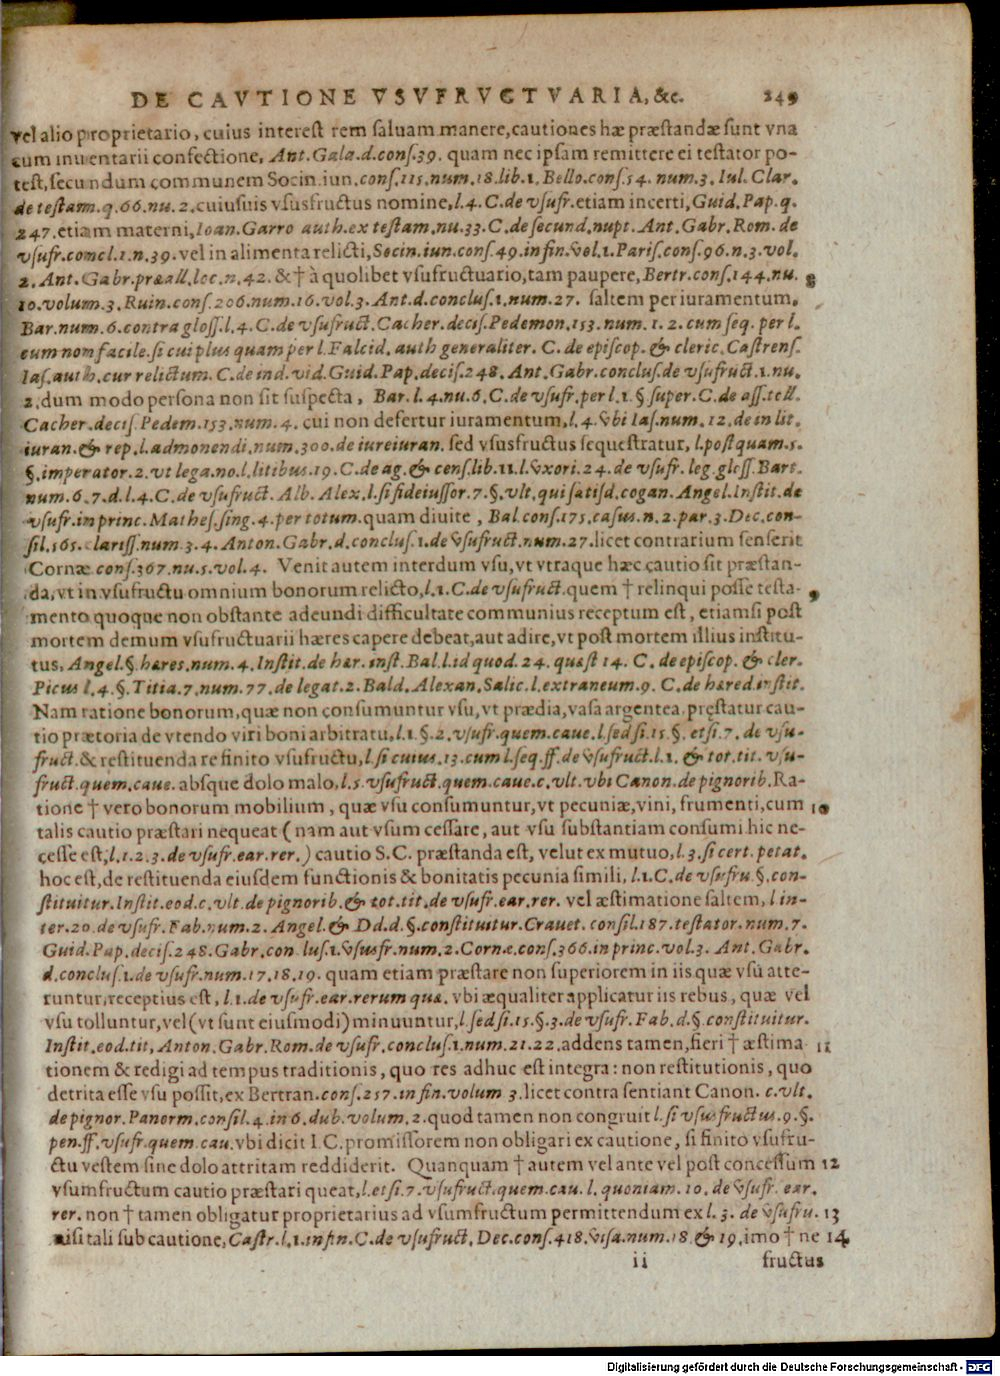 DE CAVTIONE VSVFRVCTVARIA, &c. 249
vel alio proprietario, cuius interest rem saluam manere, cautiones hæ præstandæ sunt vna
cum inuentarii confectione, Ant. Gala. d. cons. 39. quam nec ipsam remittere ei testator po-
test, secundum communem Socin. iun. cons. 115. num. 18. lib. 1. Bello. cons. 54. num. 3. Iul. Clar.
de testam. q. 66. nu. 2. cuiusuis vsusfructus nomine, l. 4. C. de vsufr. etiam incerti, Guid. Pap. q.
247. etiam materni, Ioan. Garro auth. ex testam. nu. 33. C. de secund. nupt. Ant. Gabr. Rom. de
vsufr. concl. 1. n. 39. vel in alimenta relicti, Socin. iun. cons. 49. in fin. vol. 1. Paris. cons. 96. n. 3. vol.
2. Ant. Gabr. præall. loc. n. 42. & † à quolibet vsufructuario, tam paupere, Bertr. cons. 144. nu. 8
10. volum. 3. Ruin. cons. 206. num. 16. vol. 3. Ant. d. conclus. 1. num. 27. saltem per iuramentum,
Bar. num. 6. contra gloss. l. 4. C. de vsufruct. Cacher. decis. Pedemon. 153. num. 1. 2. cum seq. per l.
cum non facile. si cui plus quam per l. Falcid. auth generaliter. C. de episcop. & cleric. Castrens.
Ias. auth. cur relictum. C. de ind. vid. Guid. Pap. decis. 248. Ant. Gabr. conclus. de vsufruct. 1. nu.
2. dum modo persona non sit suspecta, Bar. l. 4. nu. 6. C. de vsufr. per l. 1. § super. C. de ass. tell.
Cacher. decis. Pedem. 153. num. 4. cui non defertur iuramentum, l. 4. vbi Ias. num. 12. de in lit.
iuran. & rep. l. admonendi. num. 300. de iureiuran. sed vsusfructus sequestratur, l. postquam. 5.
§. imperator. 2. vt lega. no. l. litibus. 19. C. de ag. & cens. lib. 11. l. vxori. 24. de vsufr. leg. gloss. Bart.
num. 6. 7. d. l. 4. C. de vsufruct. Alb. Alex. l. si fideiussor. 7. §. vlt. qui satisd. cogan. Angel. Instit. de
vsufr. in princ. Mathes. sing. 4. per totum. quam diuite, Bal. cons. 175. casus. n. 2. par. 3. Dec. con-
sil. 565. clariss. num. 3. 4. Anton. Gabr. d. conclus. 1. de vsufruct. num. 27. licet contrarium senserit
Cornæ. cons. 367. nu. 5. vol. 4. Venit autem interdum vsu, vt vtraque hæc cautio sit præstan-
da, vt in vsufructu omnium bonorum relicto, l. 1. C. de vsufruct. quem † relinqui posse testa- 9
mento quoque non obstante adeundi difficultate communius receptum est, etiamsi post
mortem demum vsufructuarii hæres capere debeat, aut adire, vt post mortem illius institu-
tus, Angel. §. hæres. num. 4. Instit. de hær. inst. Bal. l. id quod. 24. quæst 14. C. de episcop. & cler.
Picus l. 4. §. Titia. 7. num. 77. de legat. 2. Bald. Alexan. Salic. l. extraneum. 9. C. de hæred. instit.
Nam ratione bonorum, quæ non consumuntur vsu, vt prædia, vasa argentea pręstatur cau-
tio prætoria de vtendo viri boni arbitratu, l. 1. §. 2. vsufr. quem. caue. l. sed si. 15. §. et si. 7. de vsu-
fruct. & restituenda re finito vsufructu, l. si cuius. 13. cum l. seq. ff. de vsufruct. l. 1. & tot. tit. vsu-
fruct. quem. caue. absque dolo malo, l. 5. vsufruct. quem. caue. c. vlt. vbi Canon. de pignorib. Ra-
tione † vero bonorum mobilium, quæ vsu consumuntur, vt pecuniæ, vini, frumenti, cum 10
talis cautio præstari nequeat (nam aut vsum cessare, aut vsu substantiam consumi hic ne-
cesse est, l. 1. 2. 3. de vsufr. ear. rer.) cautio S. C. præstanda est, velut ex mutuo, l. 3. si cert. petat.
hoc est, de restituenda eiusdem functionis & bonitatis pecunia simili, l. 1. C. de vsufru. §. con-
stituitur. Instit. eod. c. vlt. de pignorib. & tot. tit. de vsufr. ear. rer. vel æstimatione saltem, l in-
ter. 20. de vsufr. Fab. num. 2. Angel. & Dd. d. §. constituitur. Crauet. consil. 187. testator. num. 7.
Guid. Pap. decis. 248. Gabr. con lus. 1. vsusfr. num. 2. Corne. cons. 366. in princ. vol. 3. Ant. Gabr.
d. conclus. 1. de vsufr. num. 17. 18. 19. quam etiam præstare non superiorem in iis quæ vsu atte-
runtur, receptius est, l. 1. de vsufr. ear. rerum quæ. vbi æqualiter applicatur iis rebus, quæ vel
vsu tolluntur, vel (vt sunt eiusmodi) minuuntur, l. sed si. 15. §. 3. de vsufr. Fab. d. §. constituitur.
Instit. eod. tit, Anton. Gabr. Rom. de vsufr. conclus. 1. num. 21. 22. addens tamen, fieri † æstima 11
tionem & redigi ad tempus traditionis, quo res adhuc est integra: non restitutionis, quo
detrita esse vsu possit, ex Bertran. cons. 257. in fin. volum 3. licet contra sentiant Canon. c. vlt.
de pignor. Panorm. consil. 4. in 6. dub. volum. 2. quod tamen non congruit l. si vsusfructus. 9. §.
pen. ff. vsufr. quem. cau. vbi dicit I. C. promissorem non obligari ex cautione, si finito vsufru-
ctu vestem sine dolo attritam reddiderit. Quanquam † autem vel ante vel post concessum 12
vsumfructum cautio præstari queat, l. et si. 7. vsufruct. quem. cau. l. quoniam. 10. de vsufr. ear.
rer. non † tamen obligatur proprietarius ad vsumfructum permittendum ex l. 3. de vsufru. 13
nisi tali sub cautione, Castr. l. 1. in fin. C. de vsufruct. Dec. cons. 418. visa. num. 18. & 19. imo † ne 14
ii fructus
Digitalisierung gefördert durch die Deutsche Forschungsgemeinschaft - DFG